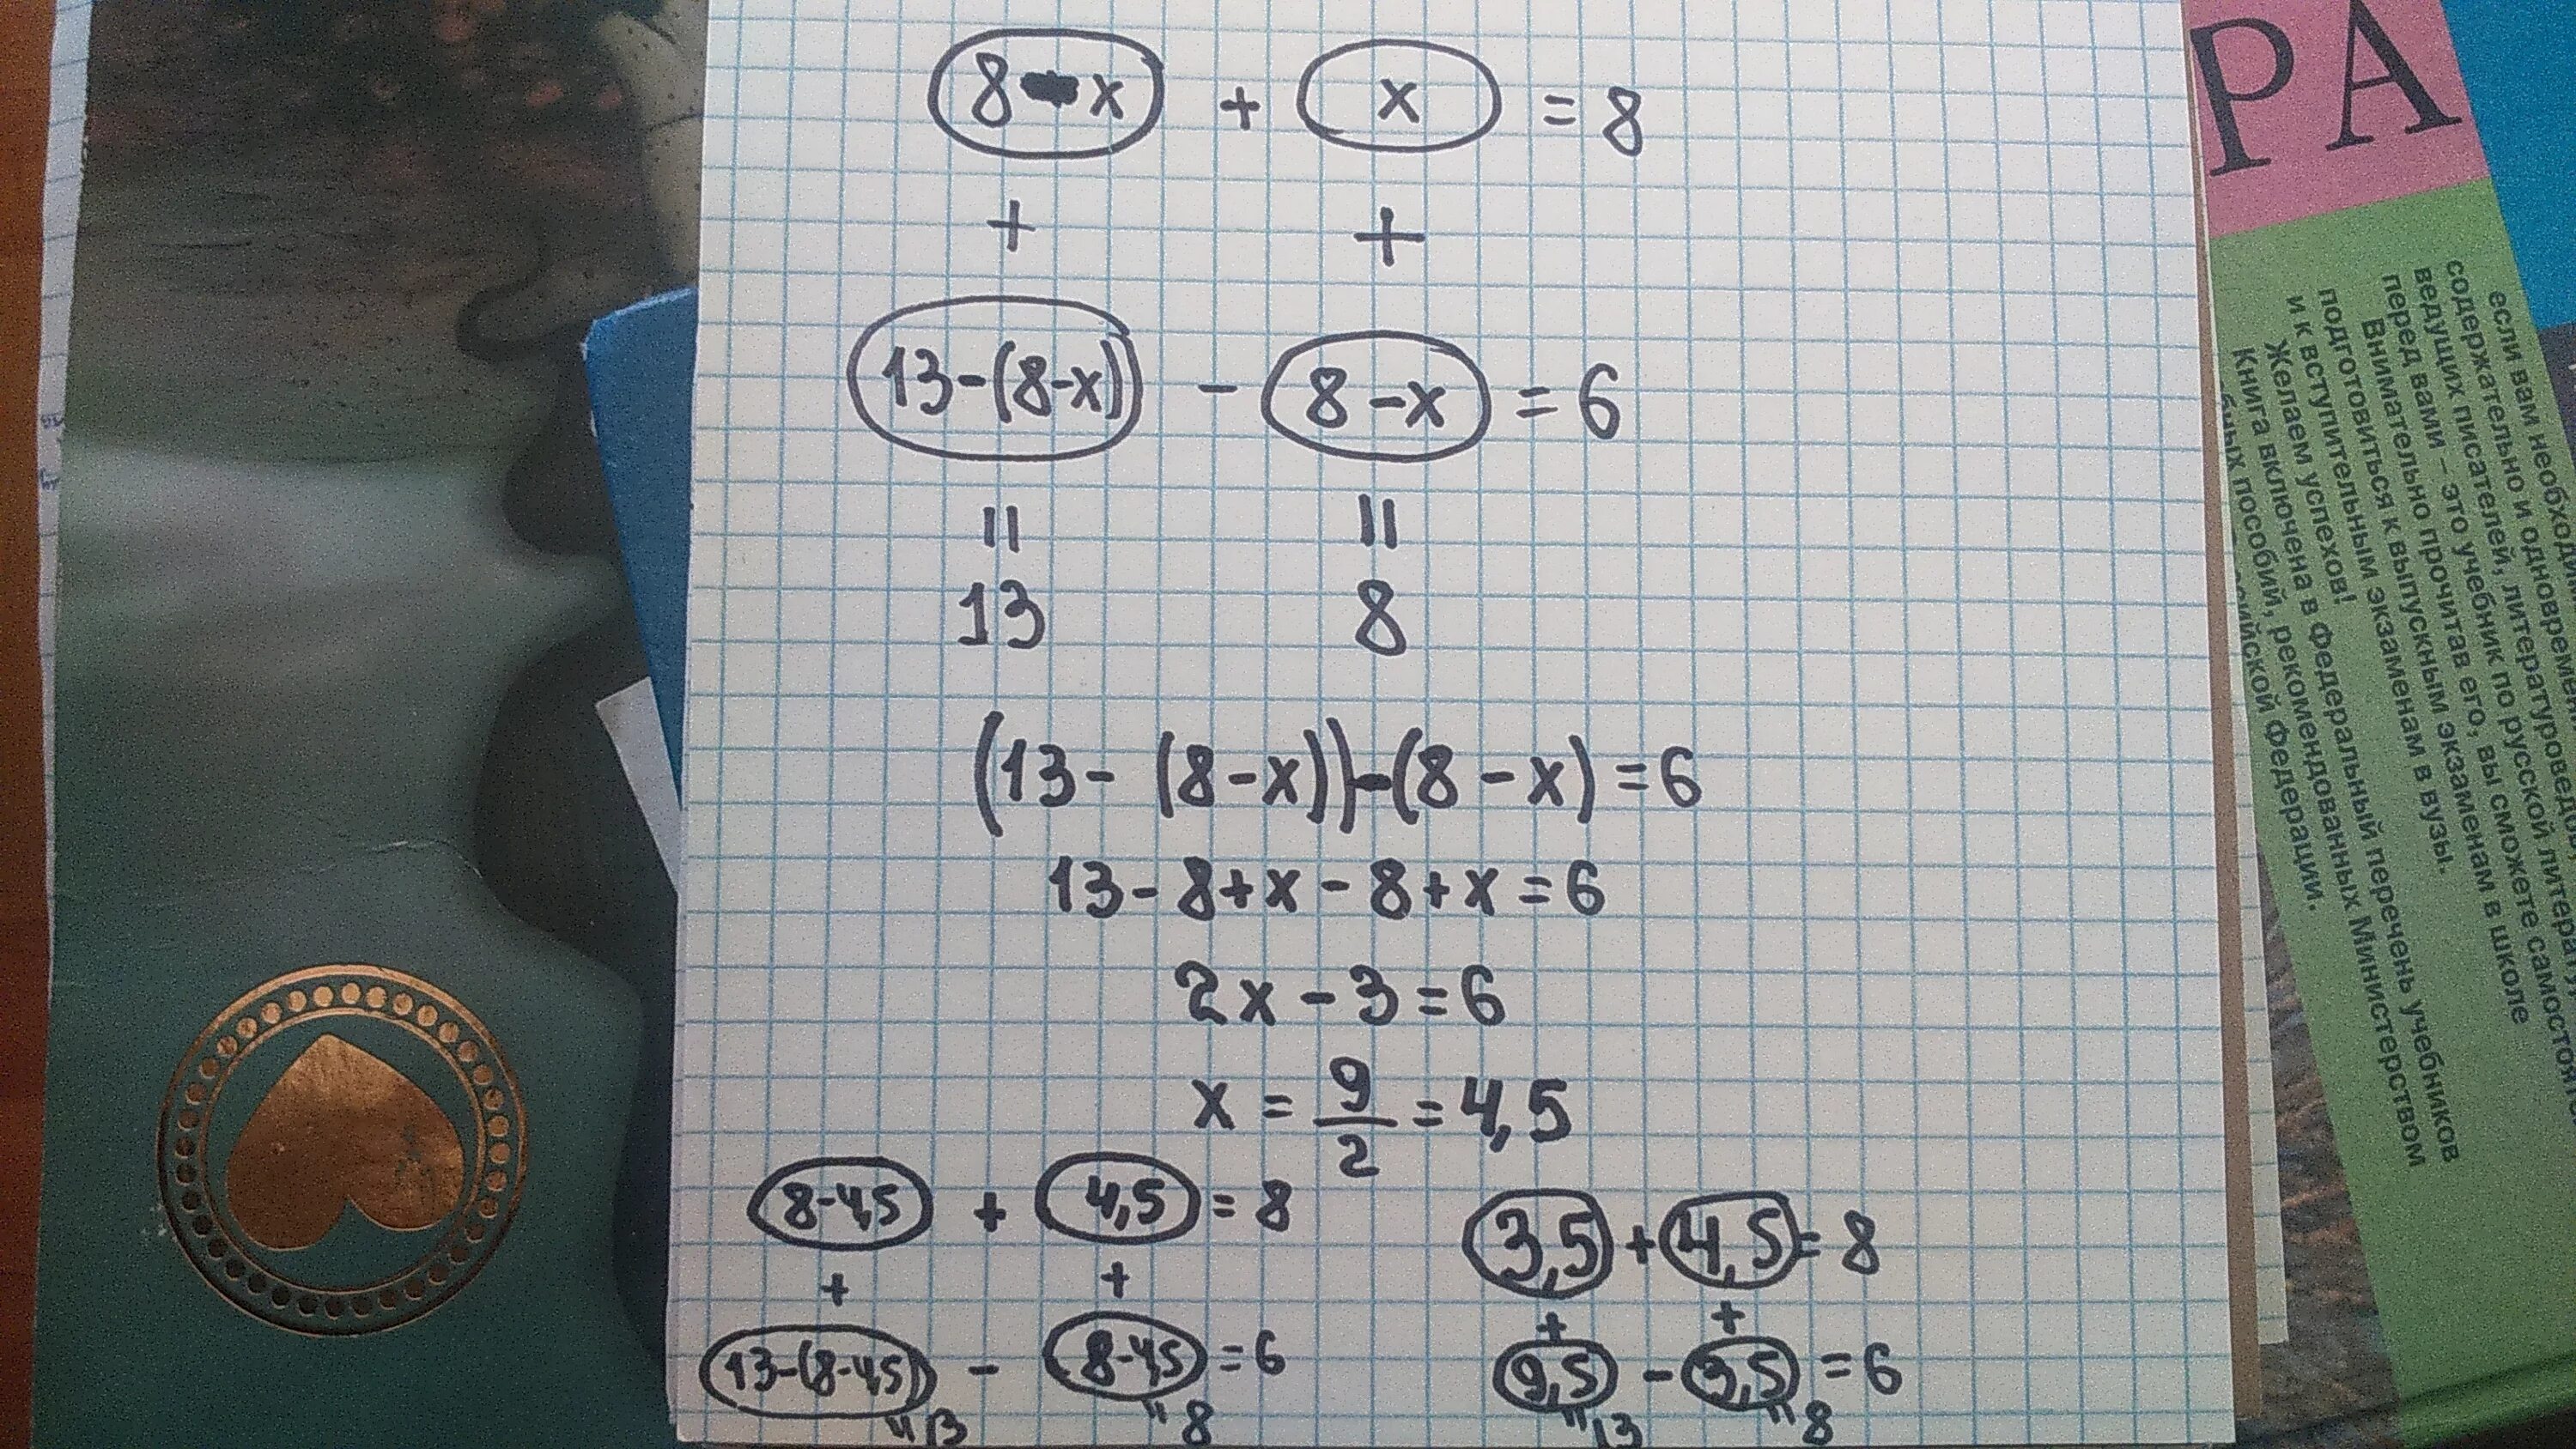 8-x + x = 8
+ +
13-(8-x) - 8-x = 6
= =
13 8
(13-(8-x))-(8-x)=6
13-8+x-8+x=6
2x-3=6
x = 9/2 = 4,5
8-4,5 + 4,5 = 8
+ +
13-(8-4,5) - 8-4,5 = 6
=13 =8
3,5 + 4,5 = 8
+ +
9,5 - 3,5 = 6
=13 =8
РА
если вам необходи
содержательно и одноврем
ведущих писателей, литературовед
перед вами – это учебник по русской литер
Внимательно прочитав его, вы сможете самостоя
подготовиться к выпускным экзаменам в школе
и к вступительным экзаменам в вузы.
Желаем успехов!
Книга включена в Федеральный перечень учебников
пособий, рекомендованных Министерством
Федерации.